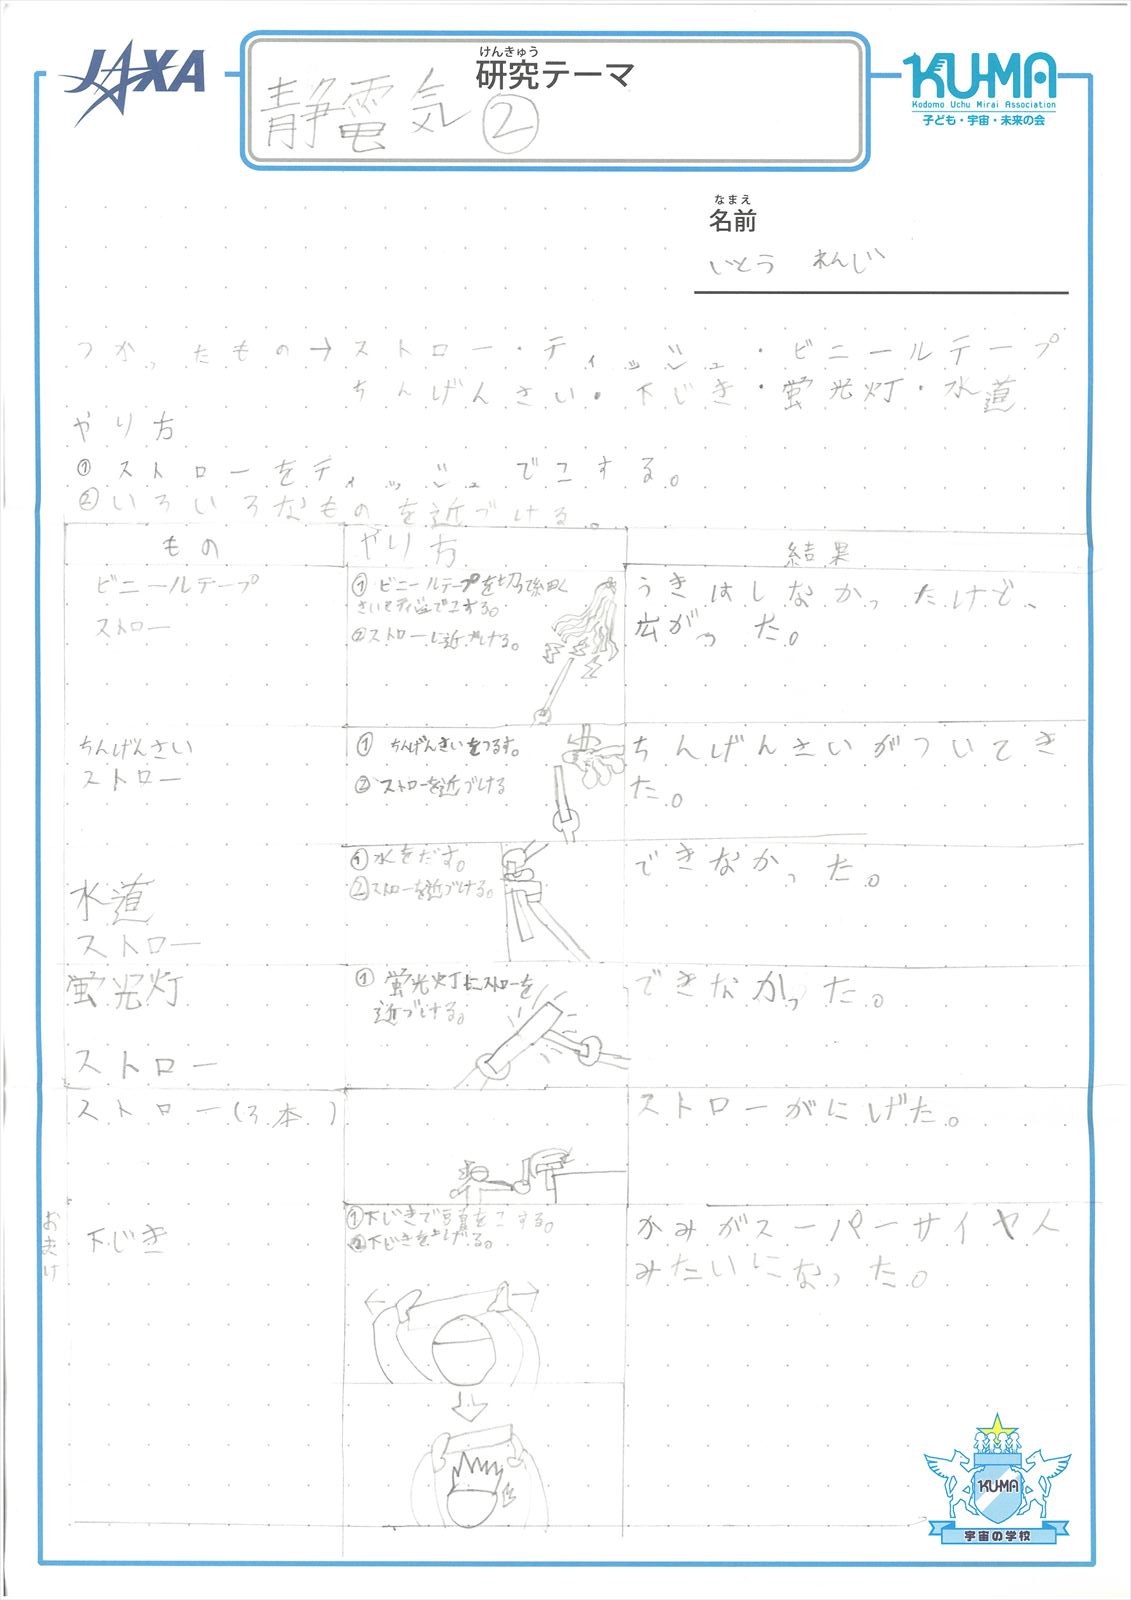 JAXA
けんきゅう
研究テーマ
静電気②
KU-MA
Kodomo Uchu Mirai Association
子ども・宇宙・未来の会
なまえ
名前
いとう れんじ
つかったもの→ストロー・ティッシュ・ビニールテープ
ちんげんさい・下じき・蛍光灯・水道
やり方
①ストローをティッシュでこする。
②いろいろなものを近づける。
もの
やり方
結果
ビニールテープ
ストロー
①ビニールテープを切って細く
さいてティッシュでこする。
②ストローに近づける。
うきはしなかったけど、
広がった。
ちんげんさい
ストロー
① ちんげんさいをつるす。
② ストローを近づける
ちんげんさいがついてき
た。
水道
ストロー
①水をだす。
②ストローを近づける。
できなかった。
蛍光灯
ストロー
① 蛍光灯にストローを
近づける。
できなかった。
ストロー(3本)
ストローがにげた。
おまけ
下じき
①下じきで頭をこする。
②下じきを上げる。
かみがスーパーサイヤ人
みたいになった。
KU-MA
宇宙の学校